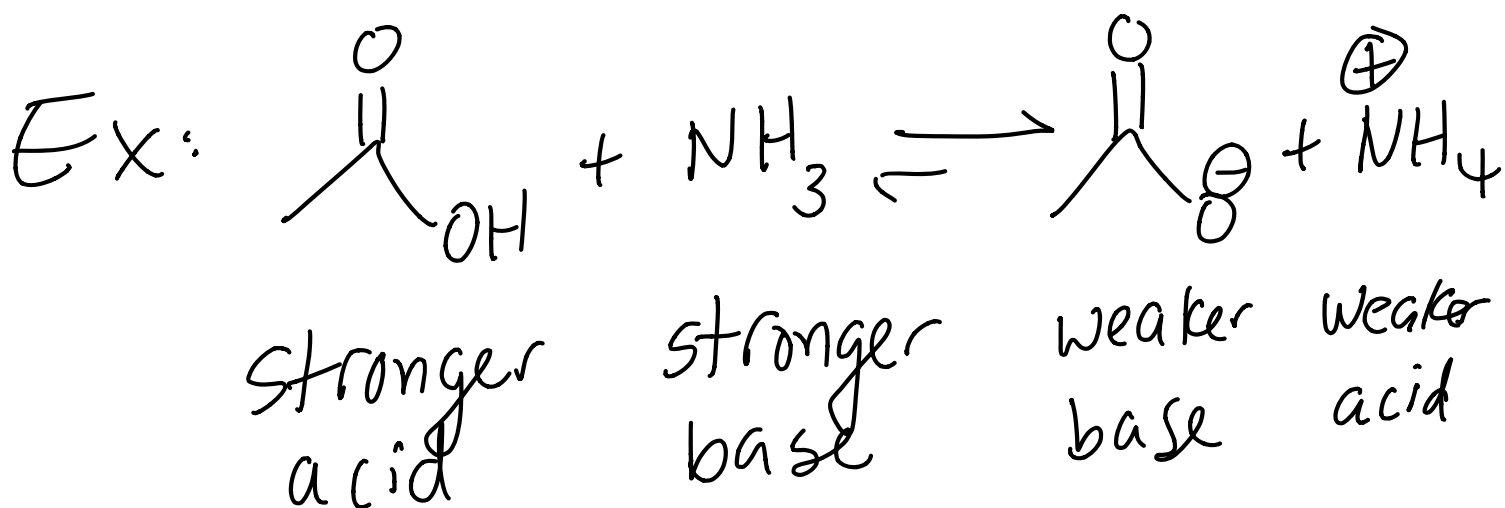 O O ⊕
Ex: OH + NH3 ⇌ O⊖ + NH4
stronger acid stronger base weaker base weaker acid